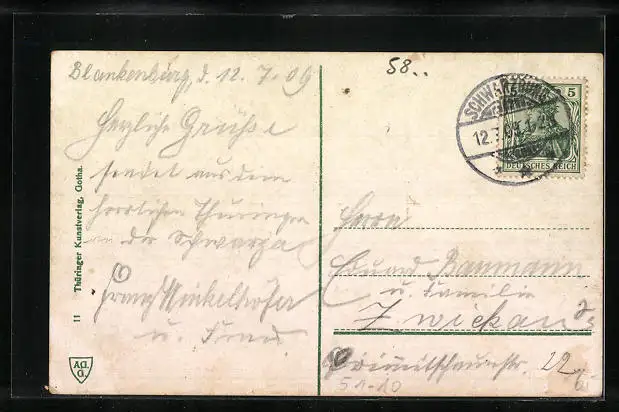 Blankenburg, d. 12. 7. 09
58..
Herzliche Grüße
sendet aus dem
herrlichen Thüringen
an der Schwarza
Franz Winkelhöfer
u. Frau.
SCHWARZBURG
12.7.09
5
DEUTSCHES REICH
Herrn
Eduard Baumann
u. Familie
Zwickau
22
51-10
11 Thüringer Kunstverlag, Gotha.